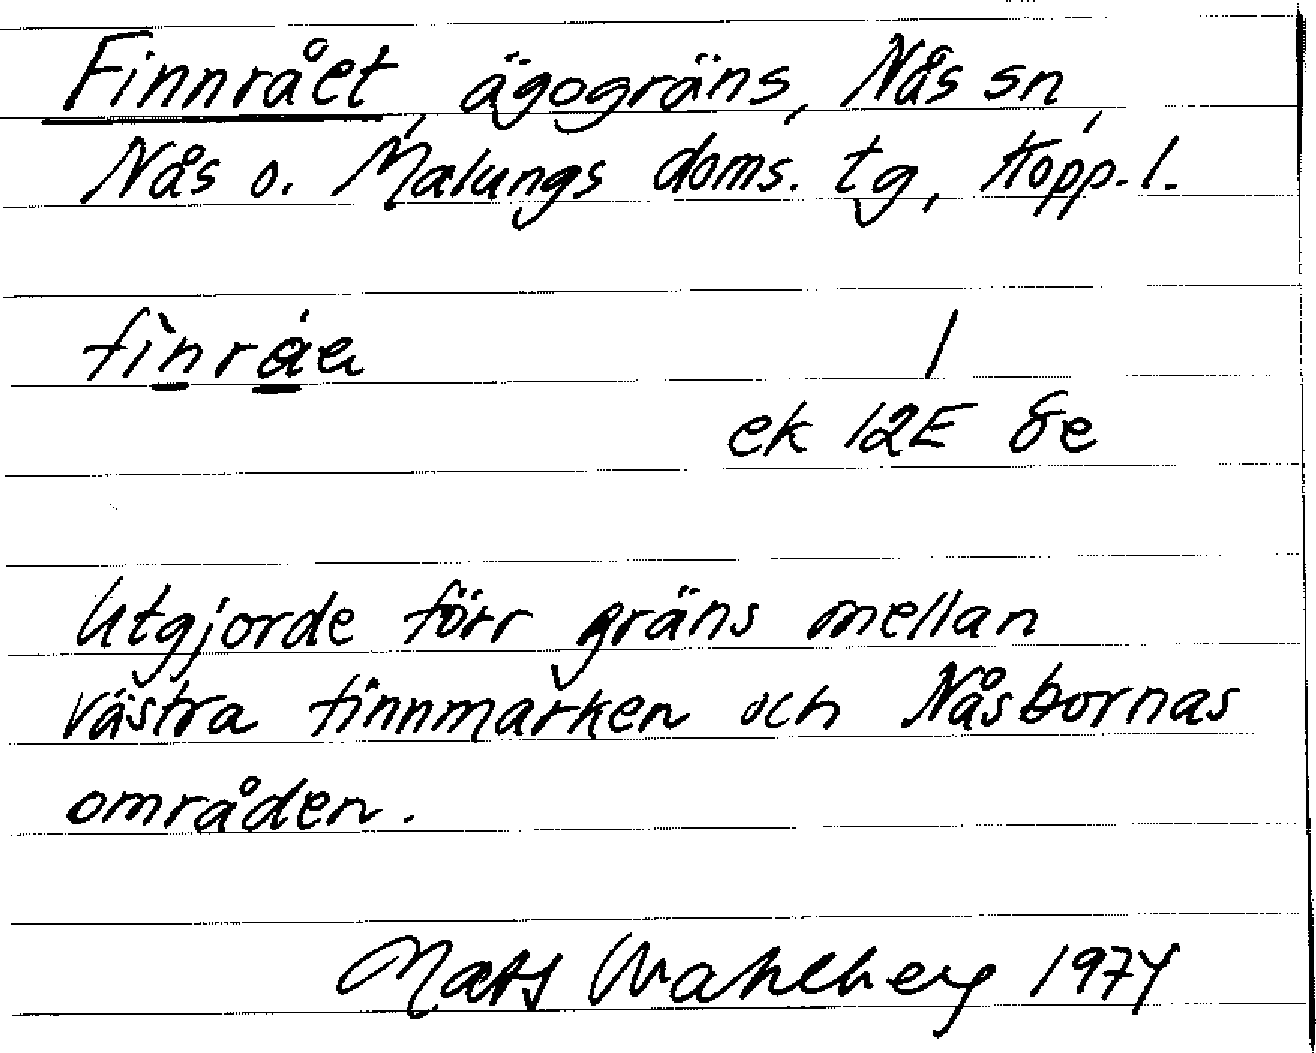 Finnrået, ägogräns, Nås sn,
Nås o. Malungs doms. tg, Kopp. l.
fìnråe /
ek 12E 8e
Utgjorde förr gräns mellan
västra finnmarken och Nåsbornas
områden.
Mats Wahlberg 1974